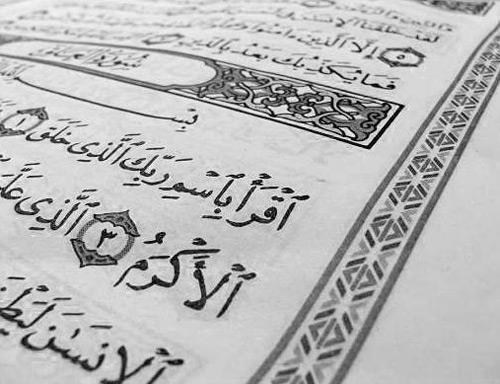 لَقَدْ خَلَقْنَا ٱلْإِنسَٰنَ
٥ إِلَّا ٱلَّذِينَ ءَامَنُوا۟
فَمَا يُكَذِّبُكَ بَعْدُ بِٱلدِّينِ
سُورَةُ العَلَقِ
بِسْ
ٱقْرَأْ بِٱسْمِ رَبِّكَ ٱلَّذِى خَلَقَ ١
ٱلْأَكْرَمُ ٣ ٱلَّذِى عَلَّ
ٱلْإِنسَٰنَ لَيَطْغَ